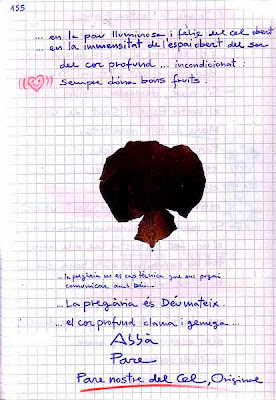 155
... en la pau lluminosa i feliç del cel obert
... en la immensitat de l'espai obert del ser
del cor profund ... incondicionat :
sempre dóna bons fruits .
... la pregària no és cap tècnica que ens pugui
comunicar amb Déu ...
... La pregària és Déu mateix .
... el cor profund clama i gemega ...
Abbà
Pare
Pare nostre del Cel, Original